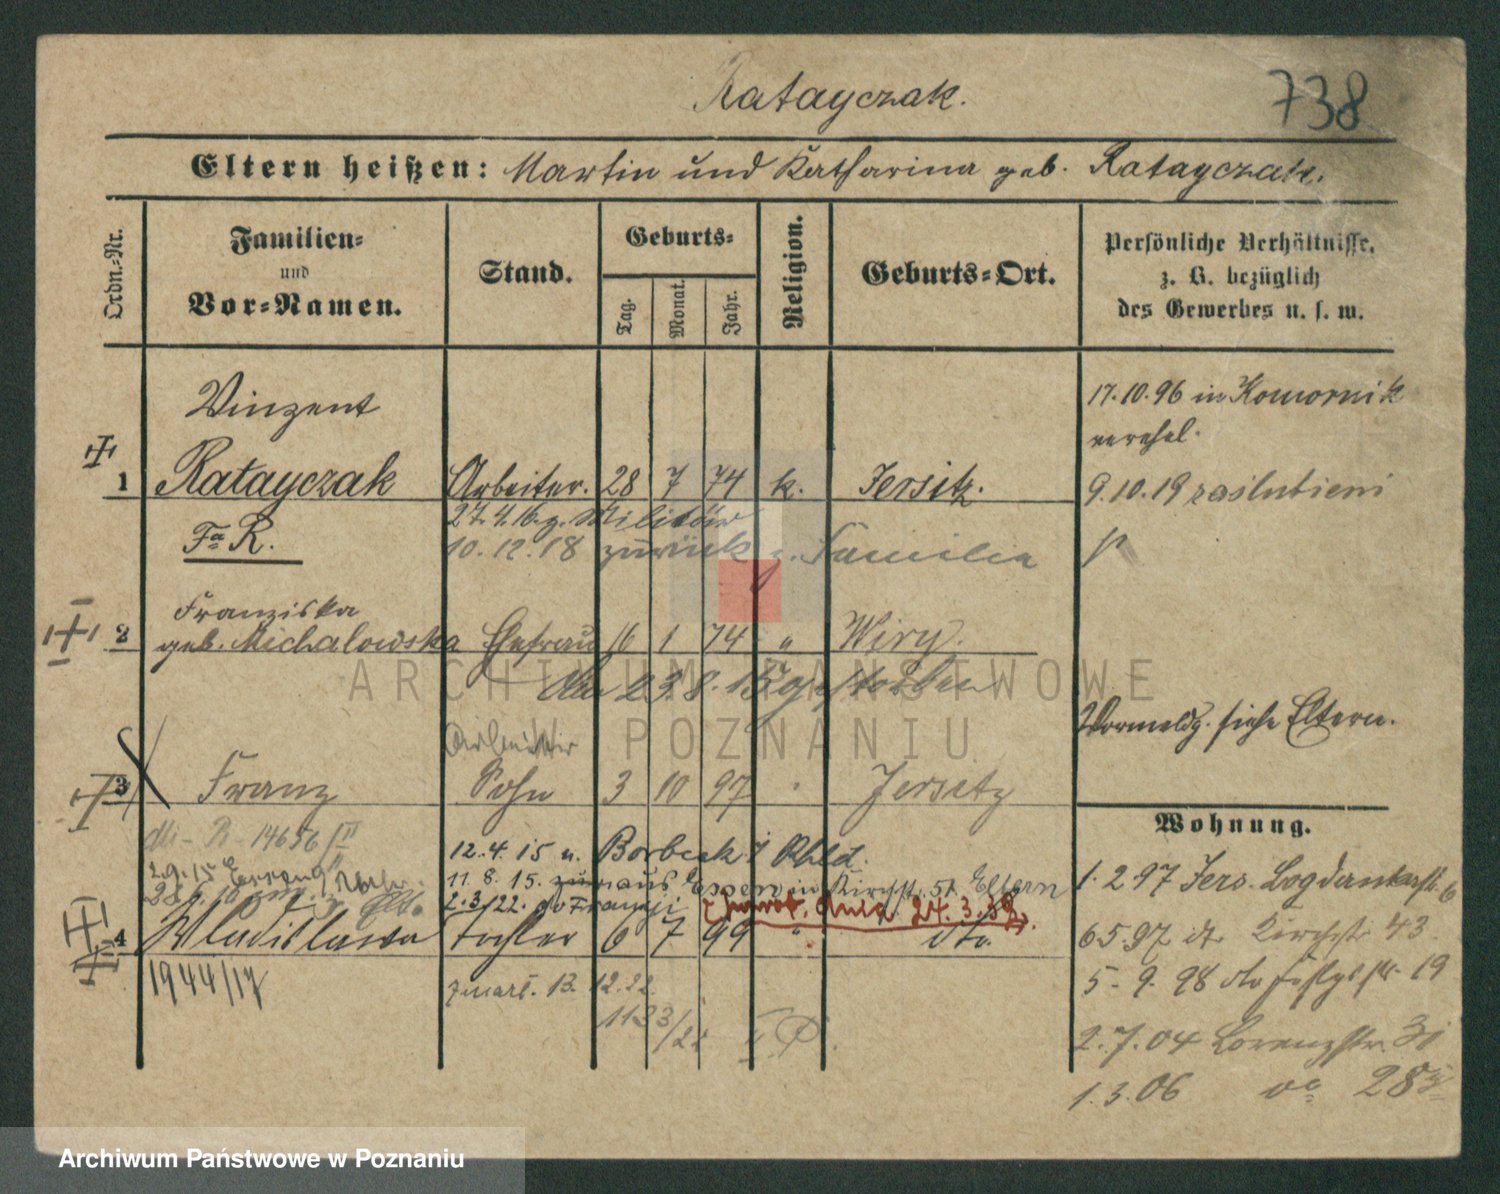 Ratayczak.
738
Eltern heißen: Martin und Katharina geb. Ratayczak.
Ordn.-Nr.
Familien-
und
Vor-Namen.
Stand.
Geburts-
Tag.
Monat.
Jahr.
Religion.
Geburts-Ort.
Persönliche Verhältnisse,
z. B. bezüglich
des Gewerbes u. s. w.
Vinzent
17.10.96 in Komornik
verehel.
1 Ratayczak Arbeiter. 28 7 74 k. Jersitz.
9.10.19 zaślubieni
Fa R.
27.4.16. z. Militär
10.12.18 zurück z. Familie
Franziska
2 geb. Michalowska Ehefrau 16 1 74 " Wiry.
den 23.8.15 gestorben
Vormeldg. siehe Eltern.
Arbeiter
3 Franz Sohn 3 10 97 " Jersitz
Wohnung.
14656/II
12.4.15 n. Borbeck / Rhld.
11.8.15. aus Essen in Kirchstr. 51 Eltern
1.2.97 Jers. Bogdankastr. 6
2.3/22. do Francji
24.3.38
4 Wladislawa Tochter 6 7 99 " dto.
6.5.97 dt. Kirchstr. 43
1944/17
zmarł. 13.12.22
5.9.98 do 19
1133/22
2.7.04 Lorenzstr. 31
1.3.06 do 28
ARCHIWUM PAŃSTWOWE
W POZNANIU
Archiwum Państwowe w Poznaniu